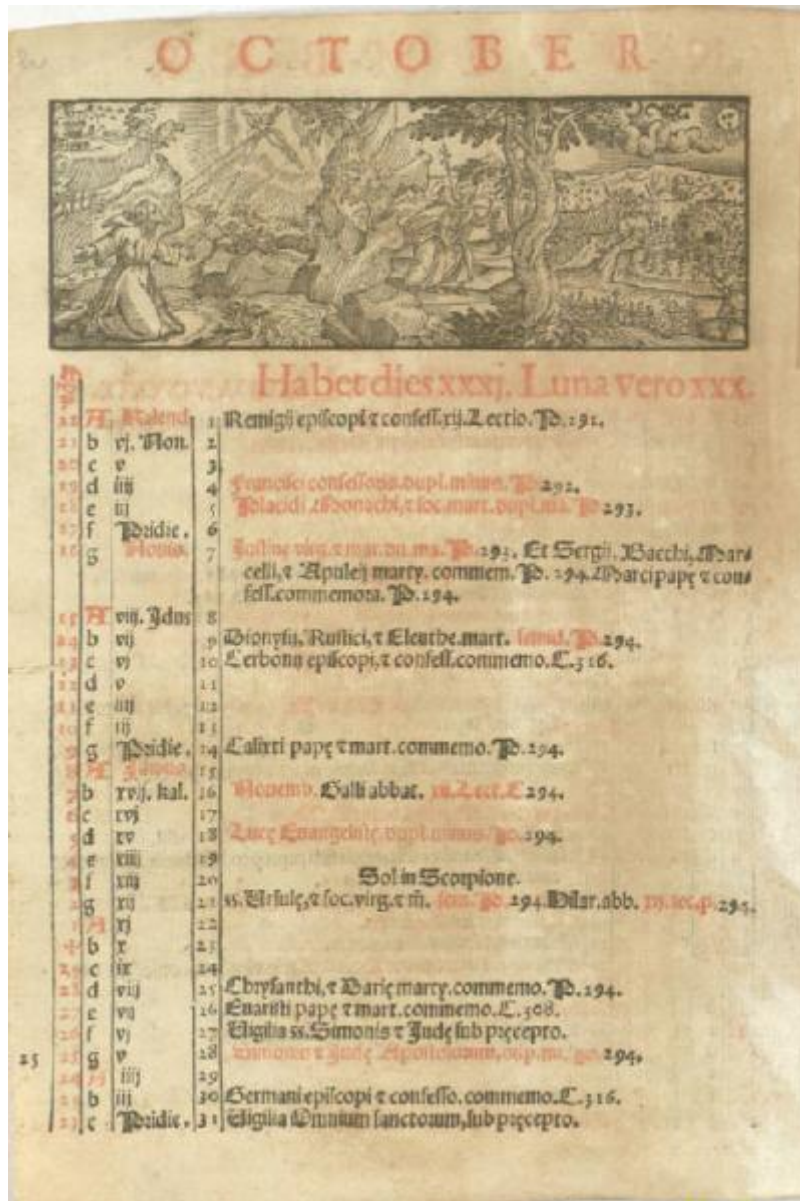 OCTOBER
Habet dies xxxj. Luna vero xxx.
22 A Kalend. 1 Remigij episcopi τ confess. xij. Lectio. P. 291.
21 b vj. Non. 2
20 c v 3
19 d iiij 4 Francisci confessoris. dupl. minus. P. 292.
18 e iij 5 Placidi Monachi, τ soc. mart. dupl. ma. P. 293.
17 f Pridie. 6
16 g Nonis. 7 Justinę virg. τ mar. du. ma. P. 293. Et Sergij, Bacchi, Mar-
celli, τ Apuleij marty. commem. P. 294. Marci papę τ con-
fess. commemora. P. 294.
15 A viij. Idus 8
14 b vij 9 Dionysij, Rustici, τ Eleuthe. mart. semid. P. 294.
13 c vj 10 Cerbonij episcopi, τ confess. commemo. C. 316.
12 d v 11
11 e iiij 12
10 f iij 13
9 g Pridie. 14 Calixti papę τ mart. commemo. P. 294.
8 A Idibus 15
7 b xvij. kal. 16 Novemb. Galli abbat. xij. Lect. C 294.
6 c xvj 17
5 d xv 18 Lucę Evangelistę. dupl. minus. P. 294.
4 e xiiij 19
3 f xiij 20 Sol in Scorpione.
2 g xij 21 ss. Ursulę, τ soc. virg. τ m̄. P. 294. Hilar. abb. xij. lec. p. 294.
1 A xj 22
b x 23
29 c ix 24
28 d viij 25 Chrysanthi, τ Darię marty. commemo. P. 294.
e vij 26 Evaristi papę τ mart. commemo. C. 308.
26 f vj 27 Vigilia ss. Simonis τ Judę sub pręcepto.
25 25 g v 28 Simonis τ Judę Apostolorum, dup. mi. P. 294.
24 A iiij 29
23 b iij 30 Germani episcopi τ confesso. commemo. C. 316.
23 c Pridie. 31 Vigilia Omnium sanctorum, sub pręcepto.